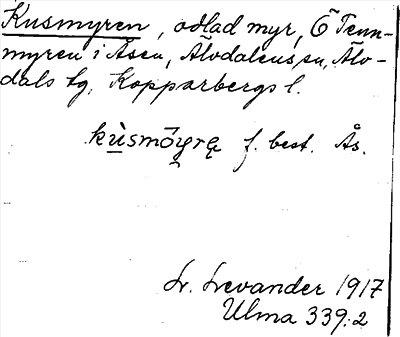 Kusmyren, odlad myr, Ö Tenn-
myren i Åsen, Älvdalens sn, Älv-
dals tg, Kopparbergs l.
kùsmöyrą f. best. Ås.
L. Levander 1917
Ulma 339:2